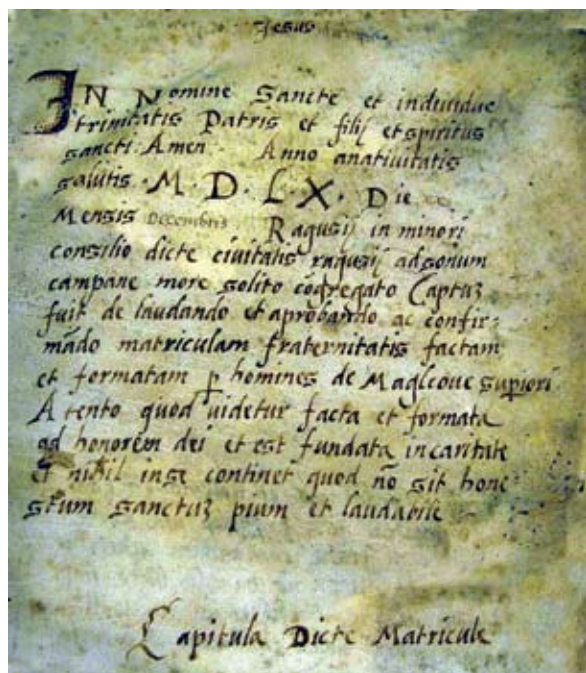 Jesus
IN Nomine Sancte et individue
trinitatis Patris et filij et spiritus
sancti. Amen. Anno anativitatis
salutis. M. D. L. X. Die
Mensis Decembris Ragusij in minori
consilio dicte civitatis ragusij ad sonum
campane more solito cōgregato Captuʒ
fuit de laudando et aprobando ac confir-
mādo matriculam fraternitatis factam
et formatam ꝑ homines de Maglcoue suꝑiori
Atento quod videtur facta et formata
ad honorem dei et est fundata in caritate
et nihil in se continet quod nō sit hone-
stum sanctuʒ pium et laudabile
Capitula Dicte Matricule